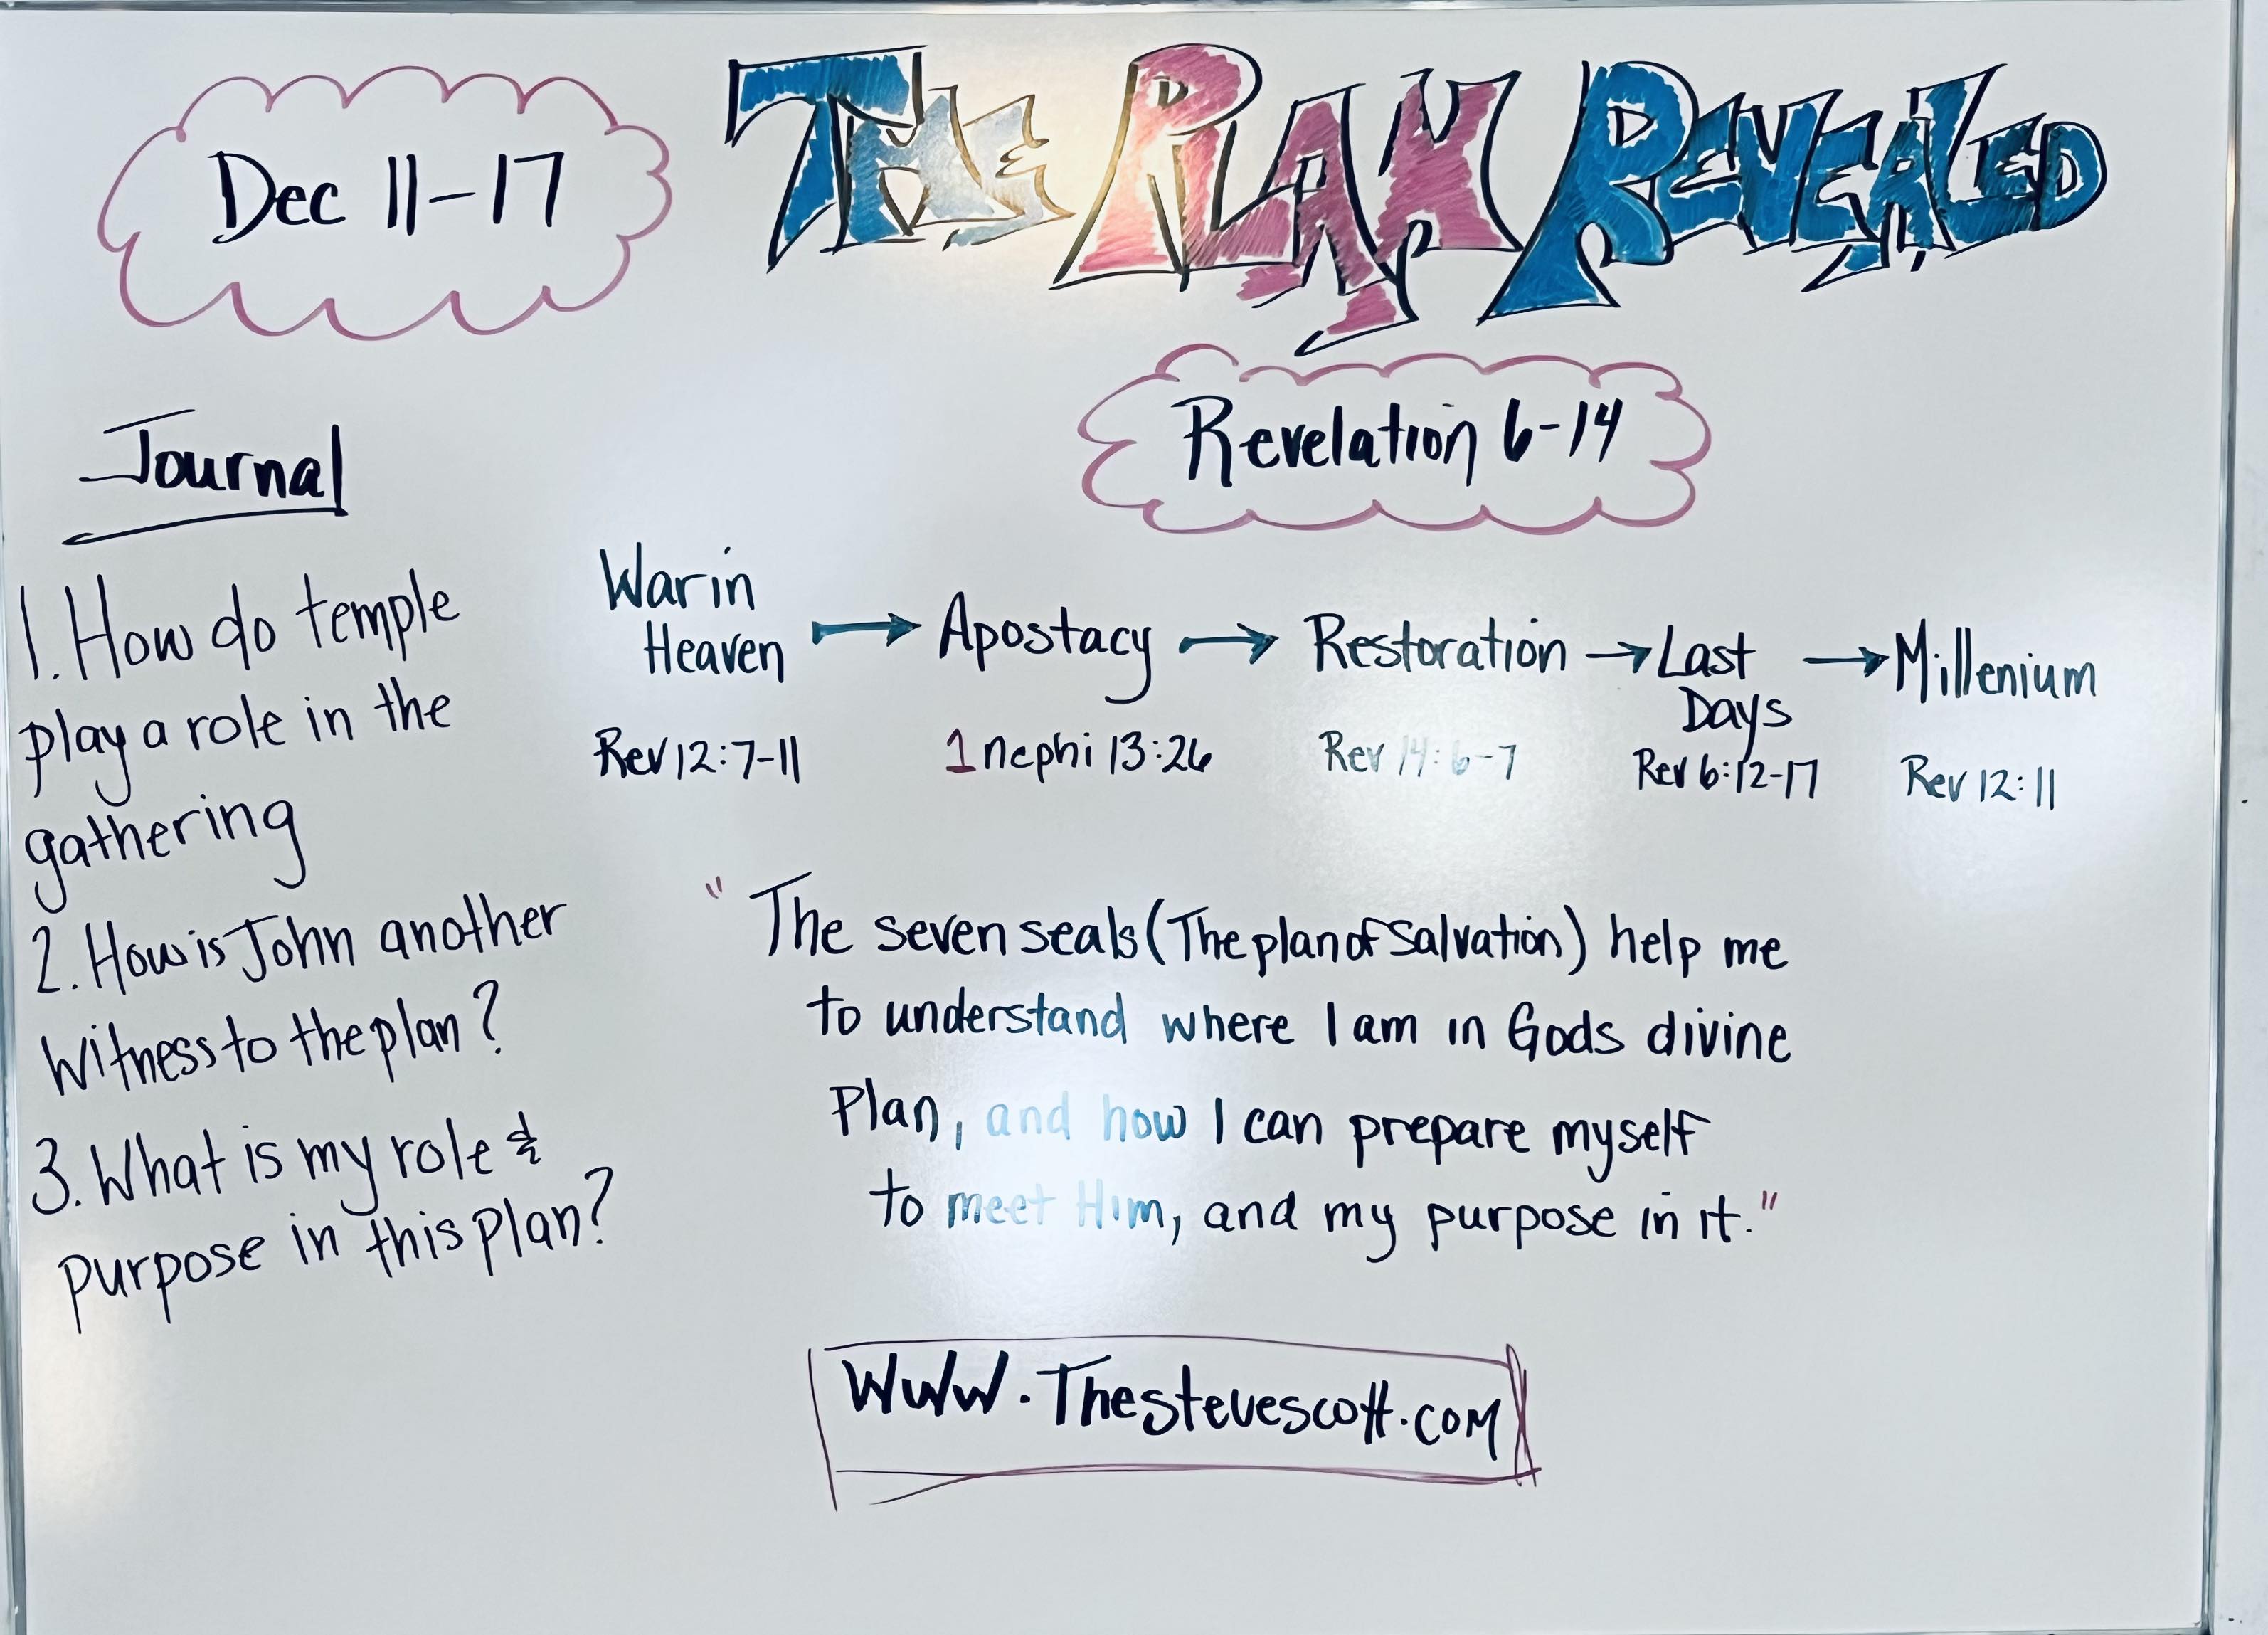 Dec 11-17
THE PLAN REVEALED
Revelation 6-14
Journal
1. How do temple
play a role in the
gathering
2. How is John another
Witness to the plan?
3. What is my role &
purpose in this plan?
War in
Heaven → Apostacy → Restoration → Last
Days → Millenium
Rev 12:7-11
1 nephi 13:26
Rev 14:6-7
Rev 6:12-17
Rev 12:11
"The seven seals (The plan of Salvation) help me
to understand where I am in Gods divine
Plan, and how I can prepare myself
to meet Him, and my purpose in it."
WWW.Thestevescott.com